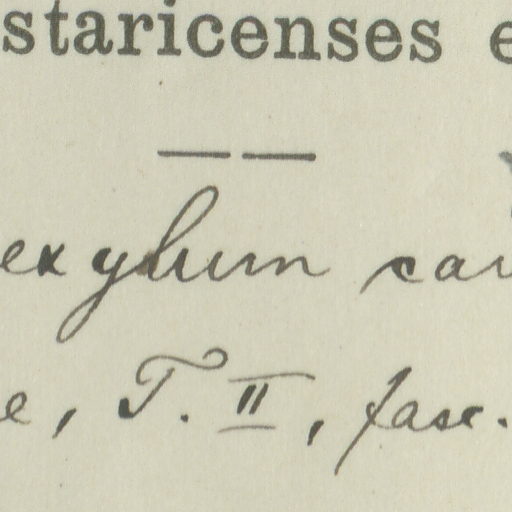 staricenses e
exylum car
e, T. II, fasc.